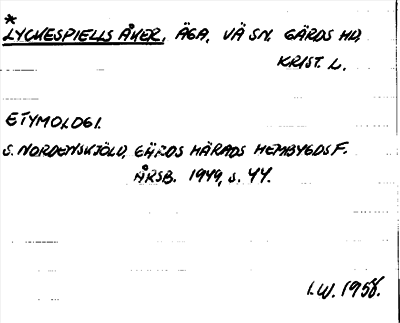 *
LYCKESPIELLS ÅKER, ÄGA, VÄ SN. GÄRDS HD,
KRIST. L.
ETYMOLOGI.
S. NORDENSKJÖLD, GÄRDS HÄRADS HEMBYGDSF.
ÅRSB. 1949, S. 44.
I.W. 1958.